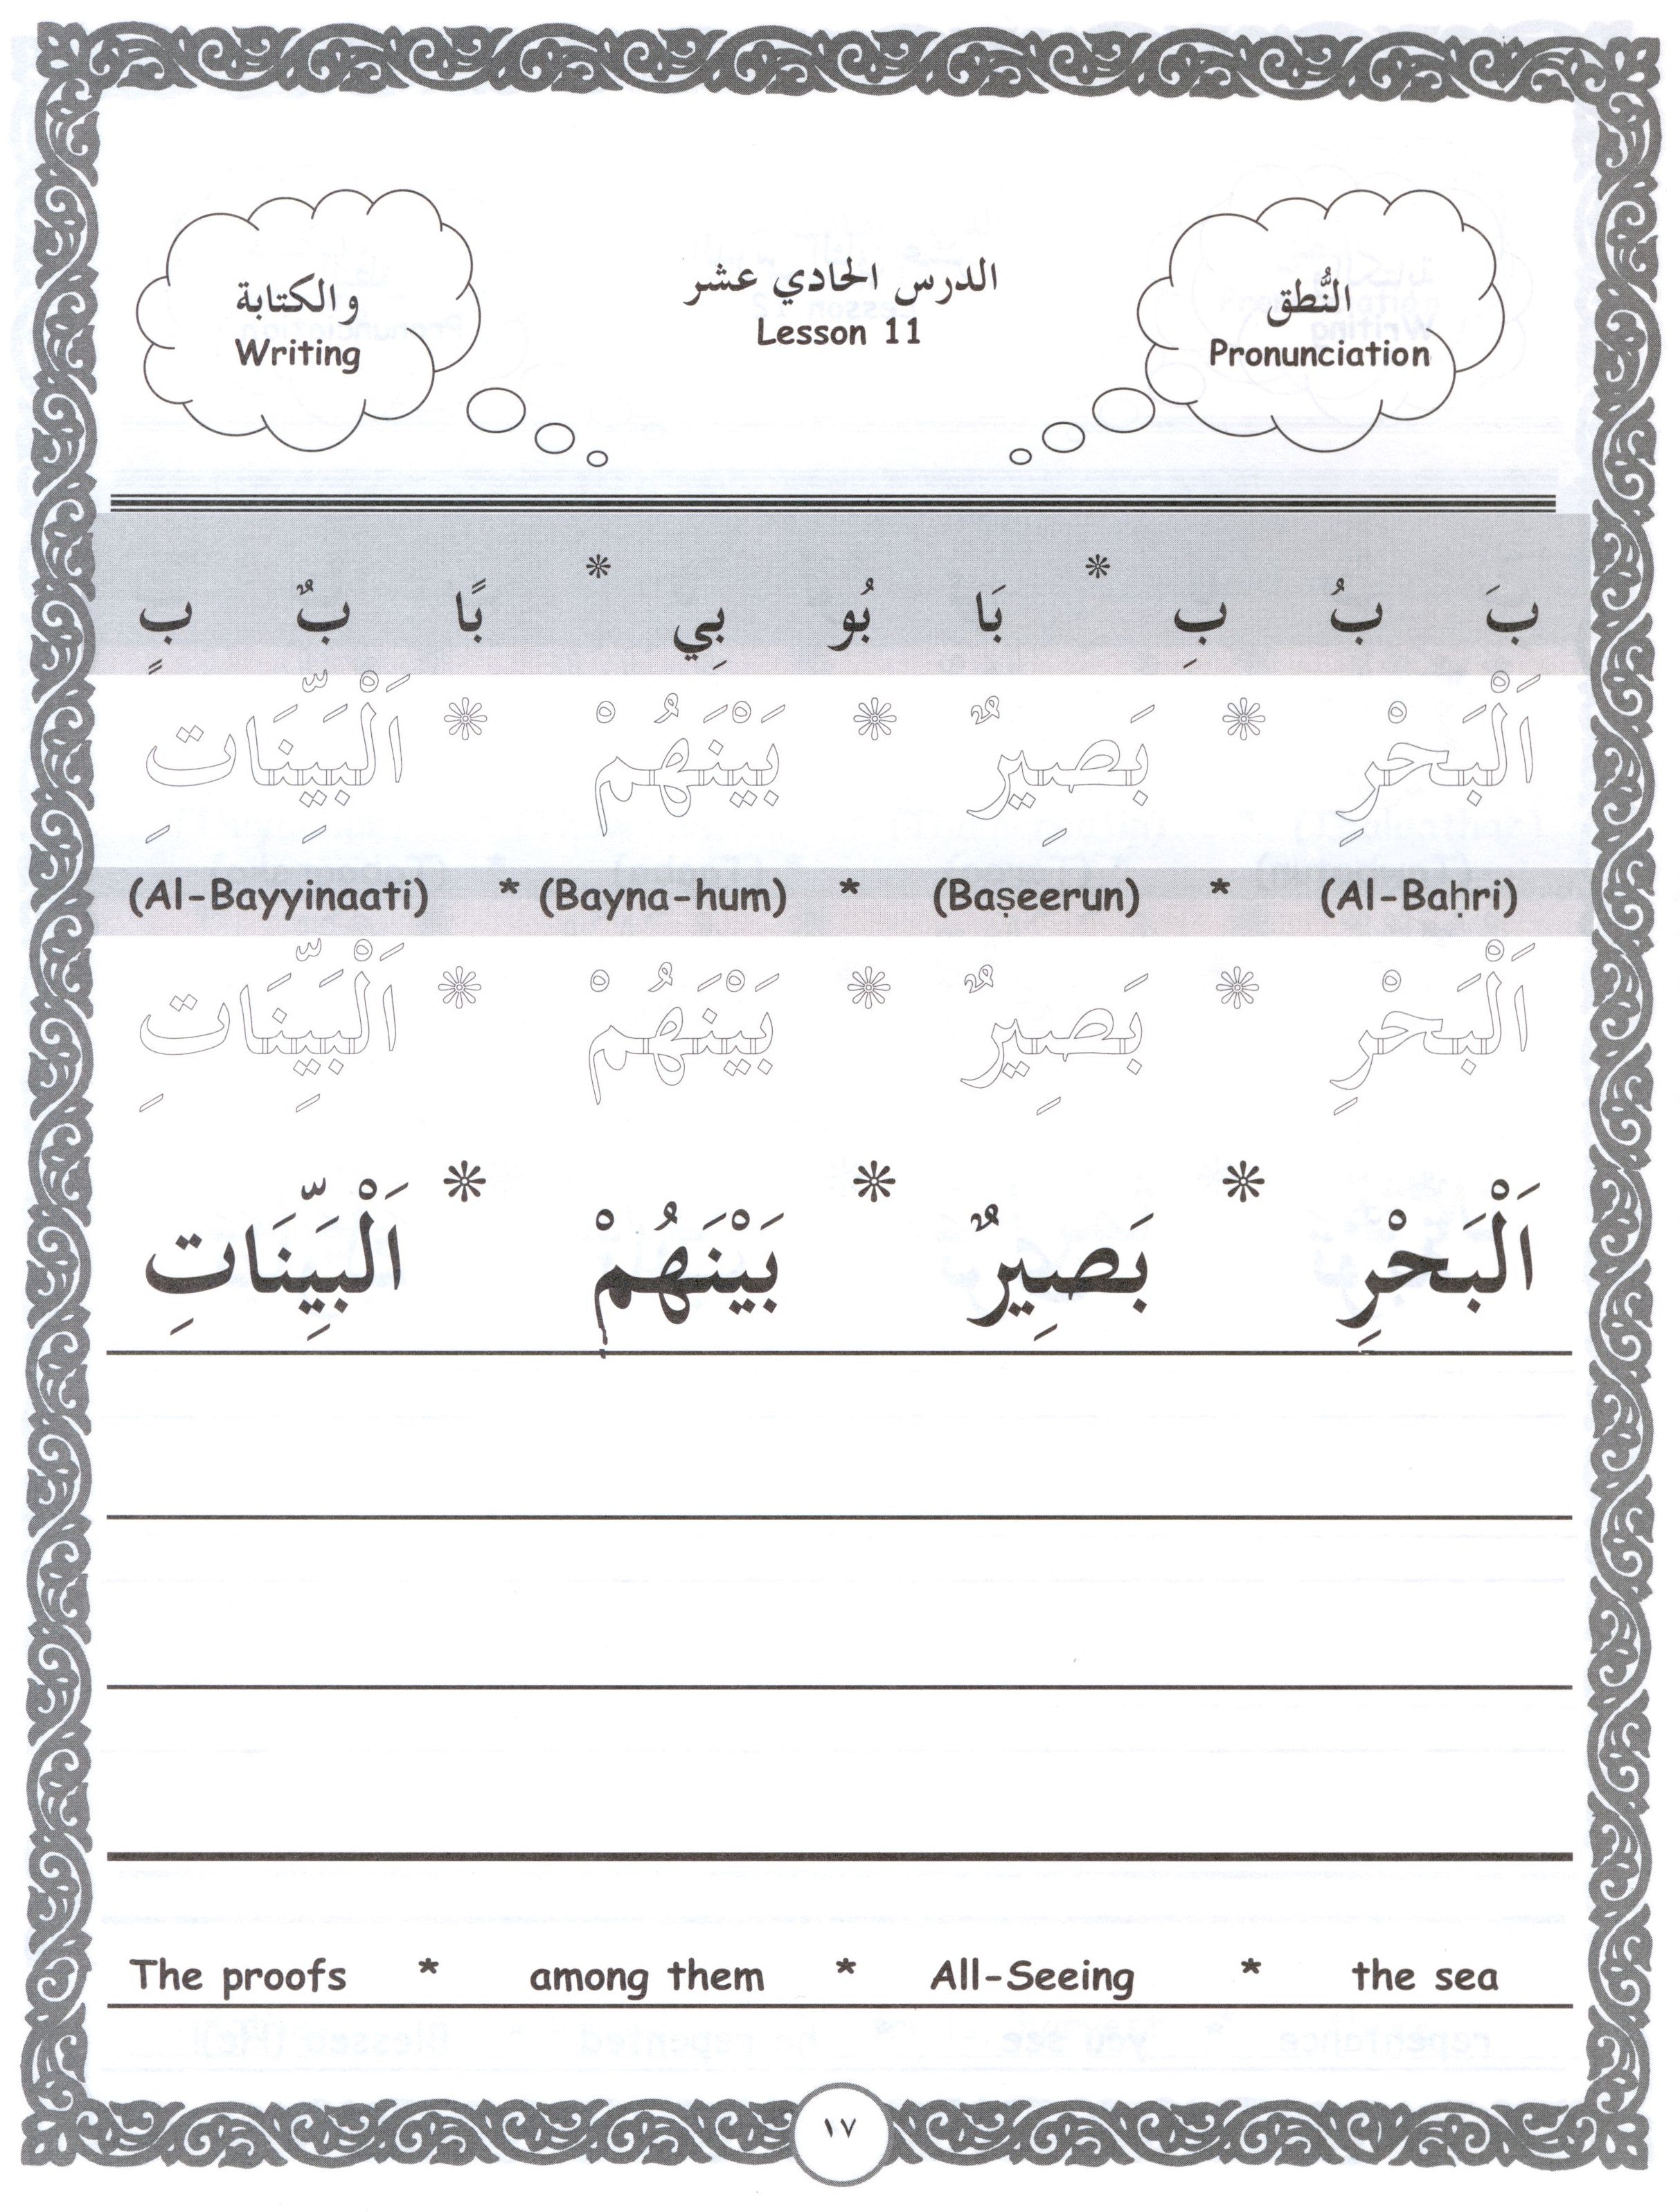 النُّطق
Pronunciation
الدرس الحادي عشر
Lesson 11
والكتابة
Writing
بَ بُ بِ * بَا بُو بِي * بًا بٌ بٍ
اَلْبَحْرِ * بَصِيرٌ * بَيْنَهُمْ * اَلْبَيِّنَاتِ
(Al-Bayyinaati) * (Bayna-hum) * (Baṣeerun) * (Al-Baḥri)
اَلْبَحْرِ * بَصِيرٌ * بَيْنَهُمْ * اَلْبَيِّنَاتِ
اَلْبَحْرِ * بَصِيرٌ * بَيْنَهُمْ * اَلْبَيِّنَاتِ
The proofs * among them * All-Seeing * the sea
١٧